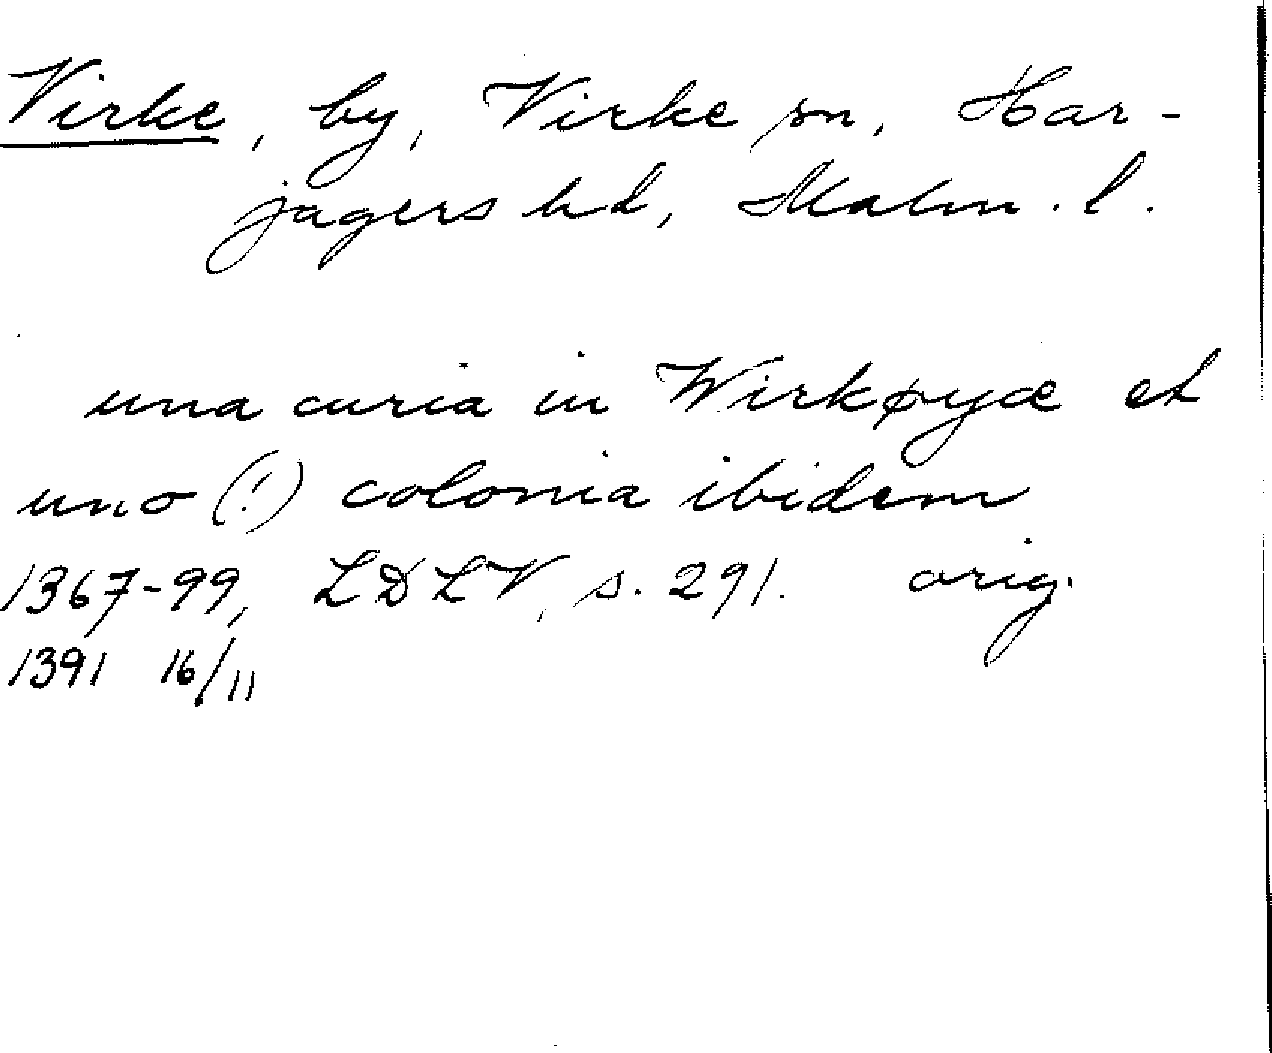 Virke, by, Virke sn, Har-
jagers hd, Malm. l.
una curia in Wirkøyæ et
uno (!) colonia ibidem
1367-99, LDLV, s. 291. orig.
1391 16/11